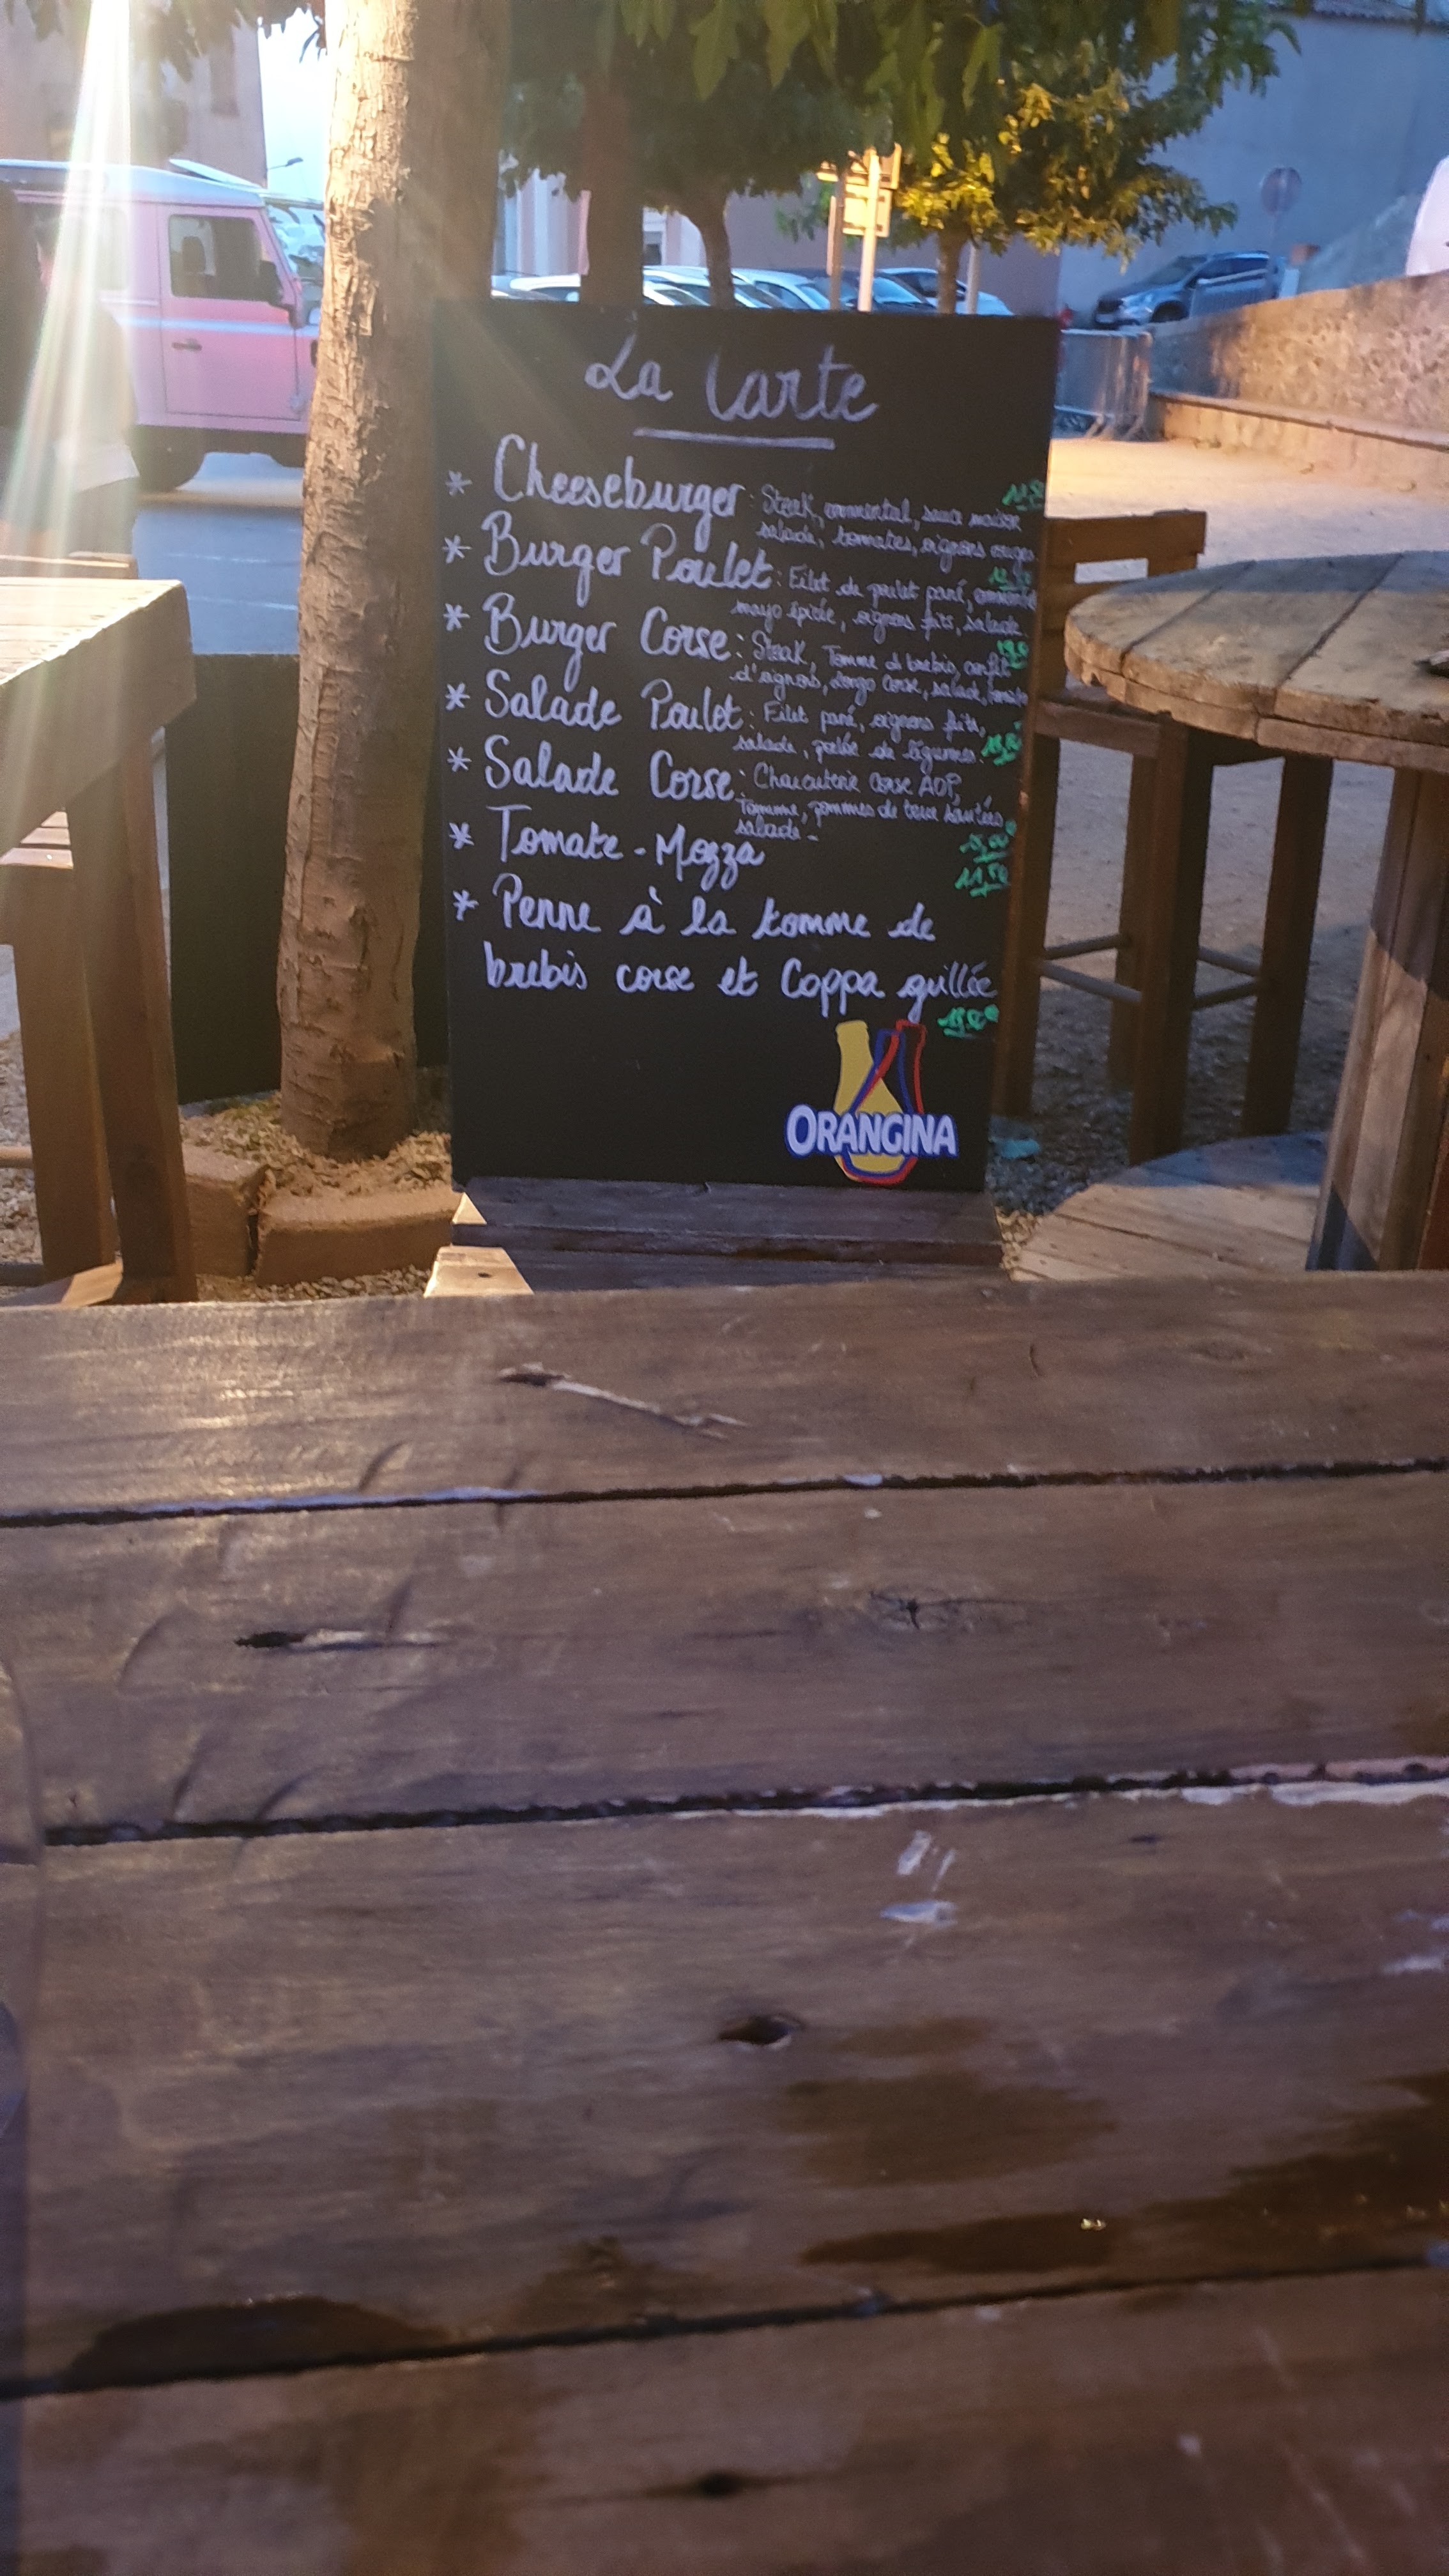 La Carte
* Cheeseburger : Steak, emmental, sauce maison
salade, tomates, oignons rouges
* Burger Poulet : Filet de poulet pané, emmental
mayo épicée, oignons frits, salade
* Burger Corse : Steak, Tomme de brebis, confit
d'oignons, Lonzo Corse, salade, tomate
* Salade Poulet : Filet pané, oignons frits,
salade, poêlée de légumes.
* Salade Corse : Charcuterie Corse AOP,
Tomme, pommes de terre sautées
salade -
* Tomate - Mozza
11,50
* Penne à la tomme de
brebis corse et Coppa grillée
ORANGINA